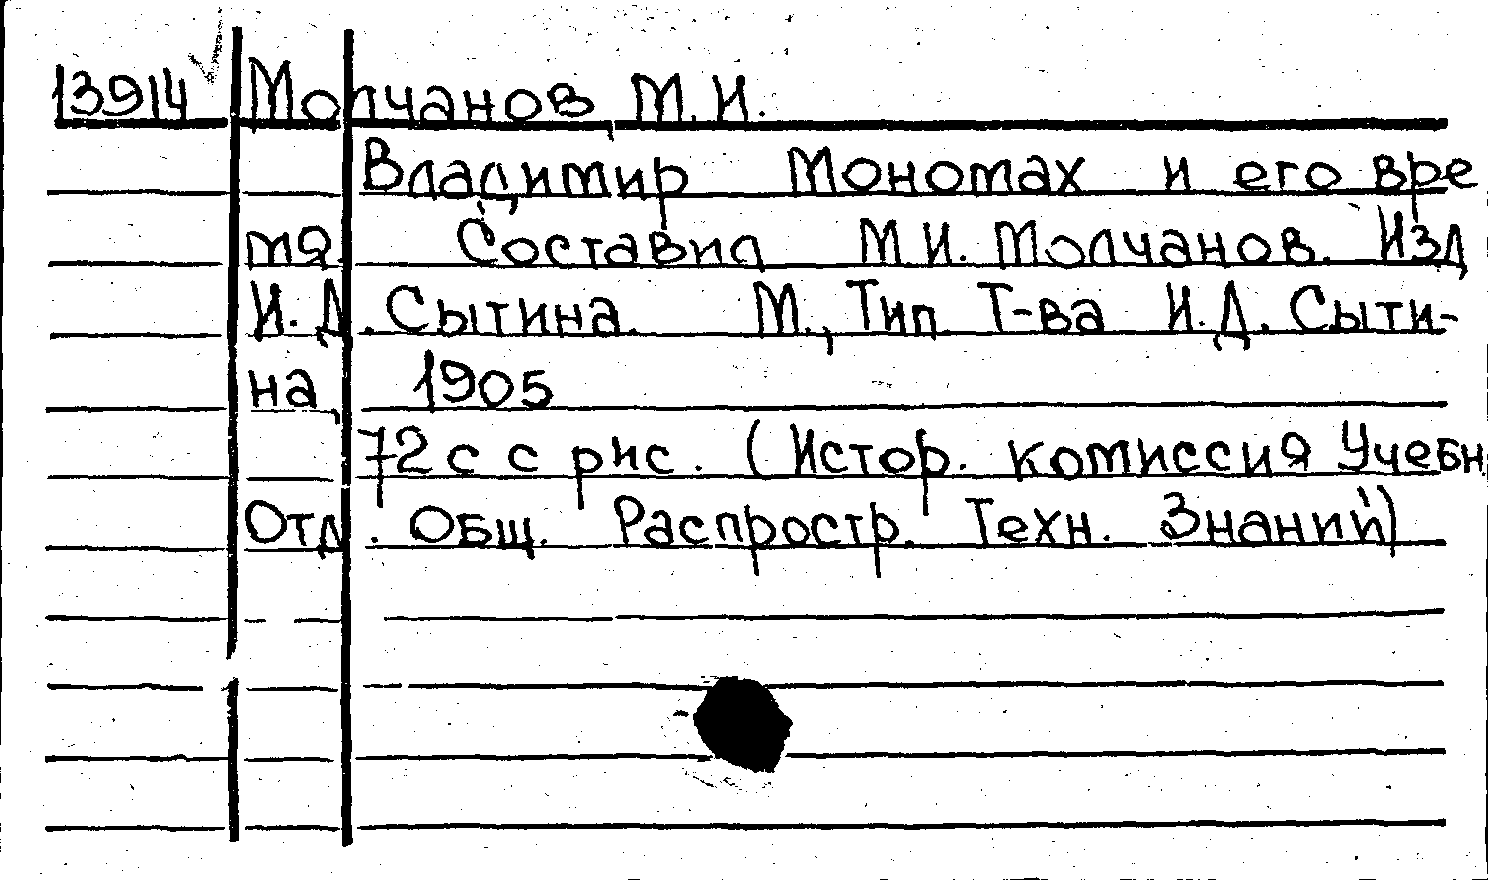 13914 Молчанов, М.И.
Владимир Мономах и его вре
мя. Составил М.И. Молчанов. Изд
И.Д. Сытина. М., Тип Т-ва И.Д. Сыти-
на, 1905
72 с с рис. (Истор. комиссия Учебн
Отд. Общ. Распростр. Техн. Знаний)